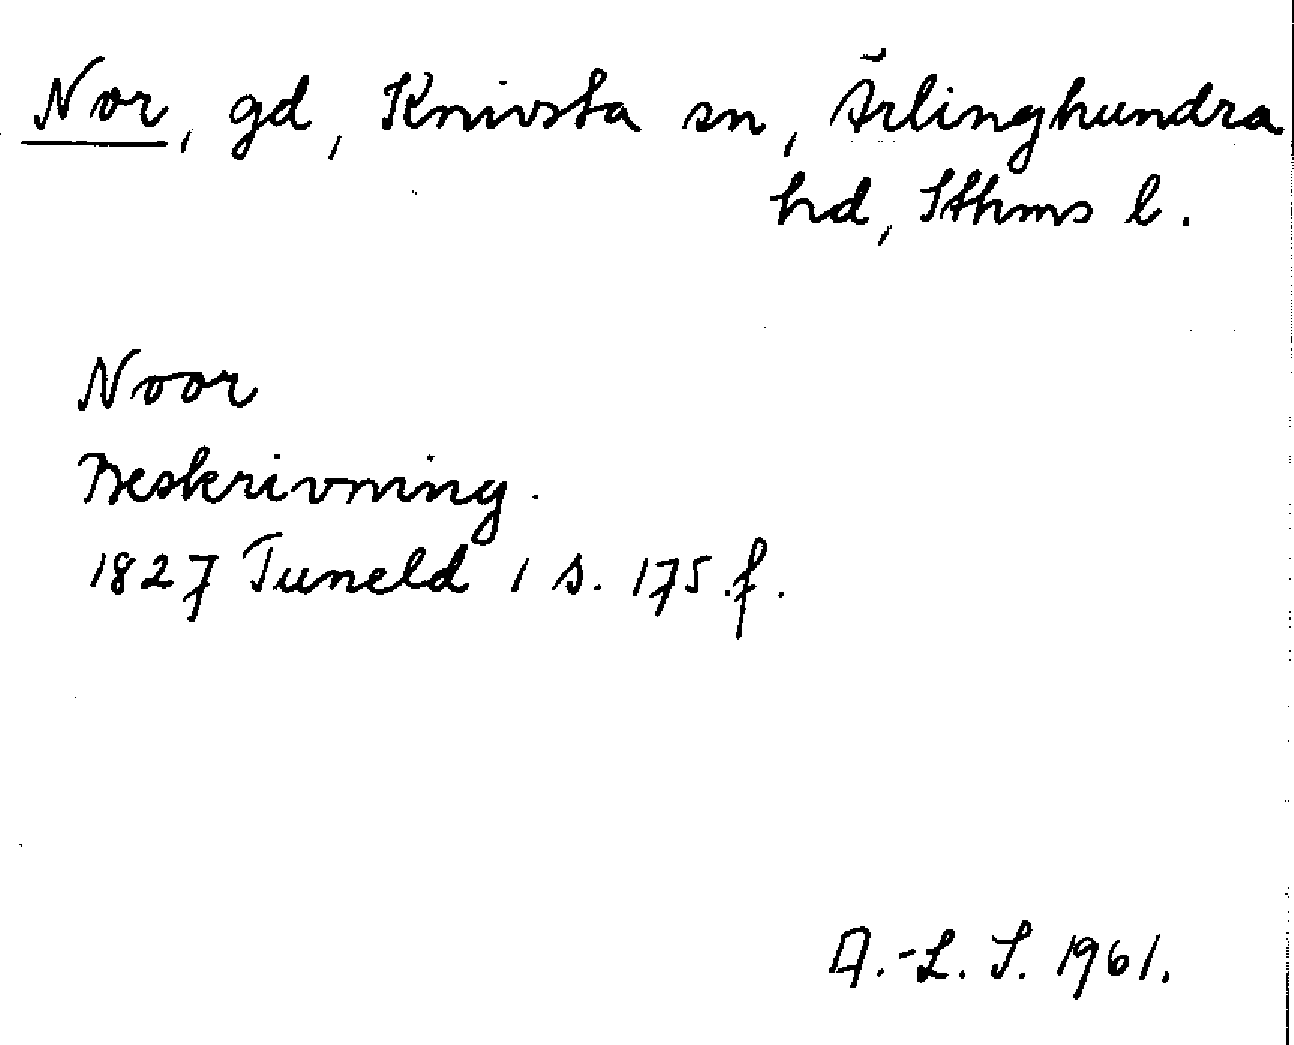 Nor, gd, Knivsta sn, Ärlinghundra
hd, Sthms l.
Noor
Beskrivning.
1827 Tuneld 1 s. 175 f.
A.-L. S. 1961.